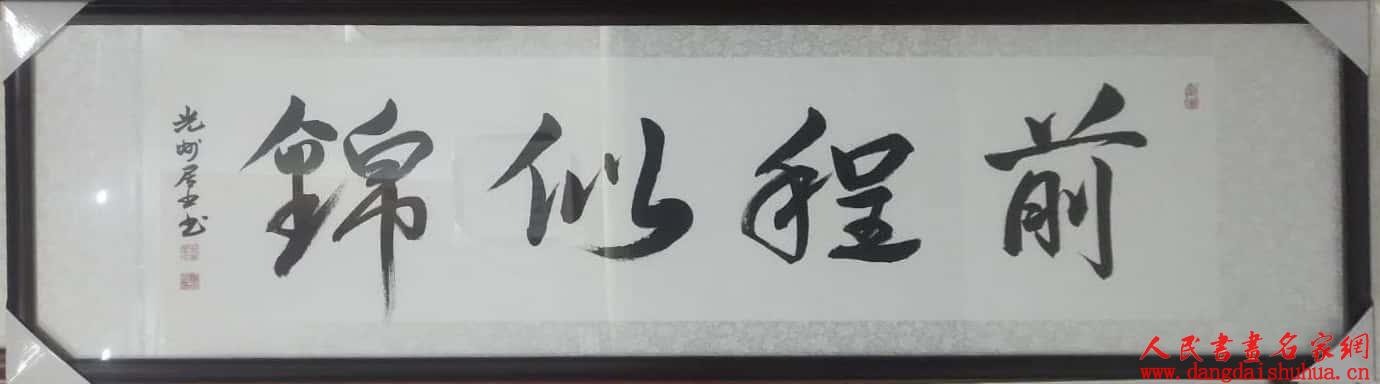 前程似錦
光州居士书
人民書畫名家網
www.dangdaishuhua.cn